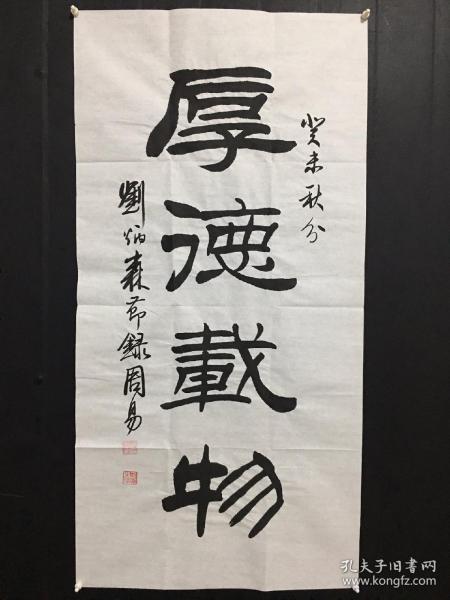 癸未秋分
厚德載物
劉炳森節録周易
孔夫子旧书网
www.kongfz.com